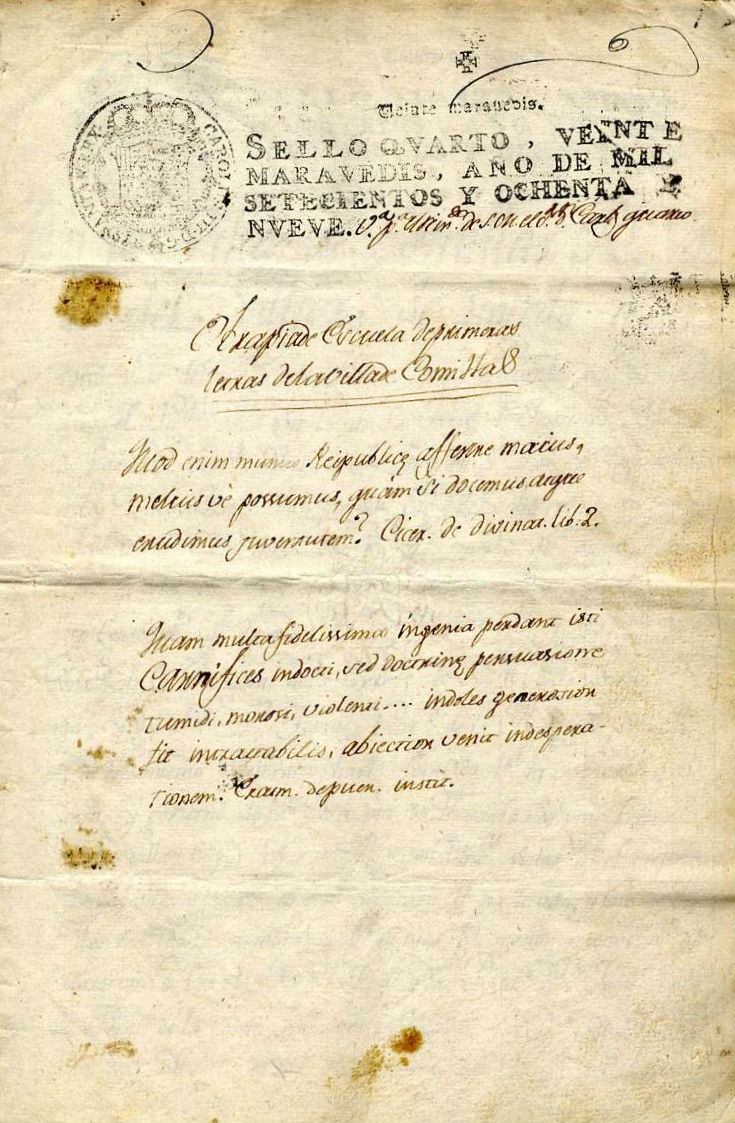 Veinte maravedis.
SELLO QVARTO, VEINTE
MARAVEDIS, AÑO DE MIL
SETECIENTOS Y OCHENTA Y
NVEVE.
CAROLUS III D. G. HISPANIAR. REX
de Escuela de primeras
letras de la Villa de Comillas
Quod enim munus Reipublicę afferre maius,
melius vè possumus, quám si docemus atque
erudimus juventutem? Cicer. de divinat. lib. 2.
Quam multa fidelissima ingenia perdant isti
Carnifices indocti, sed doctrinę persuasione
tumidi, morosi, violenti.... indoles generosior
fit intractabilis, abiectior venit in despera-
tionem. Erasm. de puer. instit.